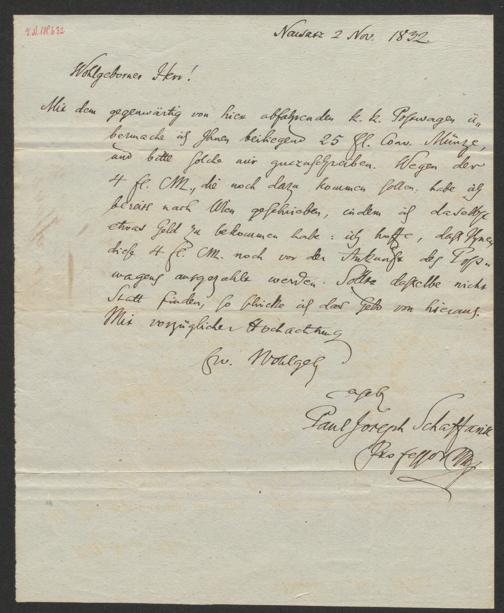 Neusatz 2 Nov. 1832
Wohlgeborner Herr!
Mit dem gegenwärtig von hier abfahrenden k. k. Postwagen ü-
bermache ich Ihnen beiliegend 25 fl. Conv. Münze,
und bitte solche mir gutzuschreiben. Wegen der
4 fl. CM., die noch dazu kommen sollen, habe ich
bereits nach Wien geschrieben, indem ich daselbst
etwas Geld zu bekommen habe: ich hoffe, daß Ihnen
diese 4 fl. CM. noch vor der Ankunft des Post-
wagens ausgezahlt werden. Sollte dasselbe nicht
Statt finden, so schicke ich das Geld von hieraus.
Mit vorzüglicher Hochachtung
Ew. Wohlgeb
ergeb
Paul Joseph Schaffarik
Professor